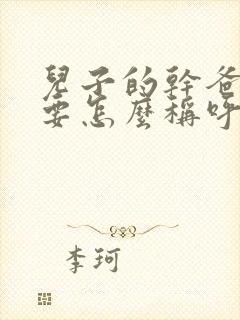 兒子的幹爸
要怎麼稱呼
李珂